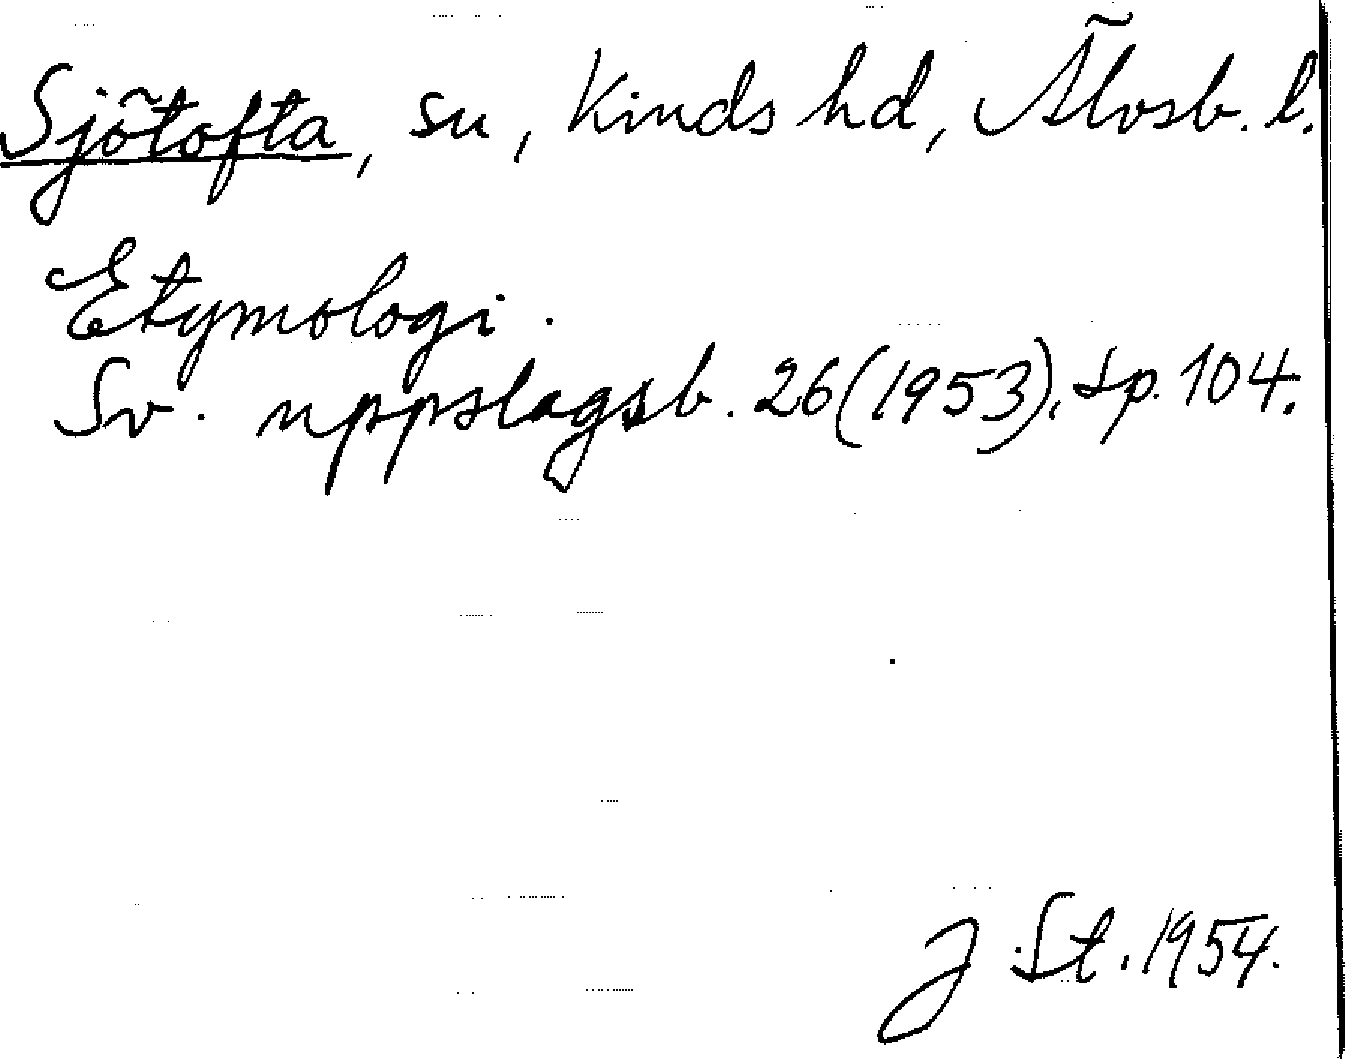 Sjötofta, sn, Kinds hd, Älvsb. l.
Etymologi.
Sv. uppslagsb. 26 (1953), sp. 104.
J St. 1954.